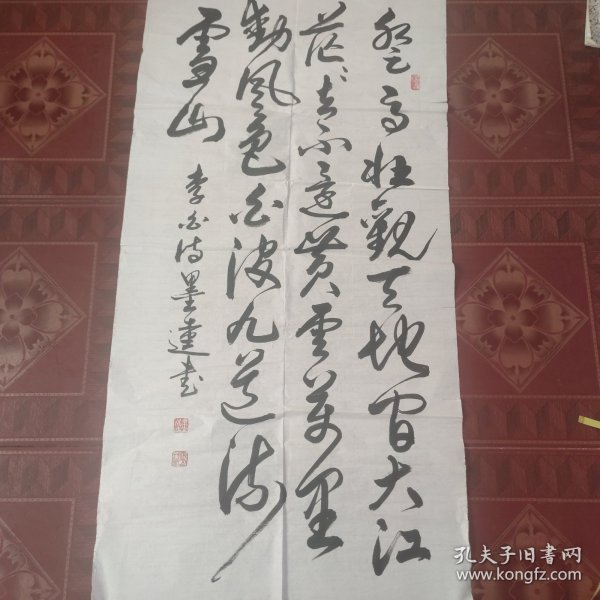 登高壮觀天地間大江
茫茫去不還黄雲萬里
動風色白波九道流
雪山
李白诗墨蓮书
孔夫子旧書网
www.kongfz.com